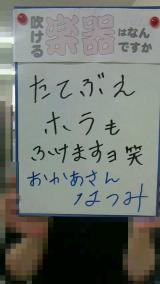 吹ける楽器はなんですか
たてぶえ
ホラも
ふけますヨ笑
おかあさん
はつみ